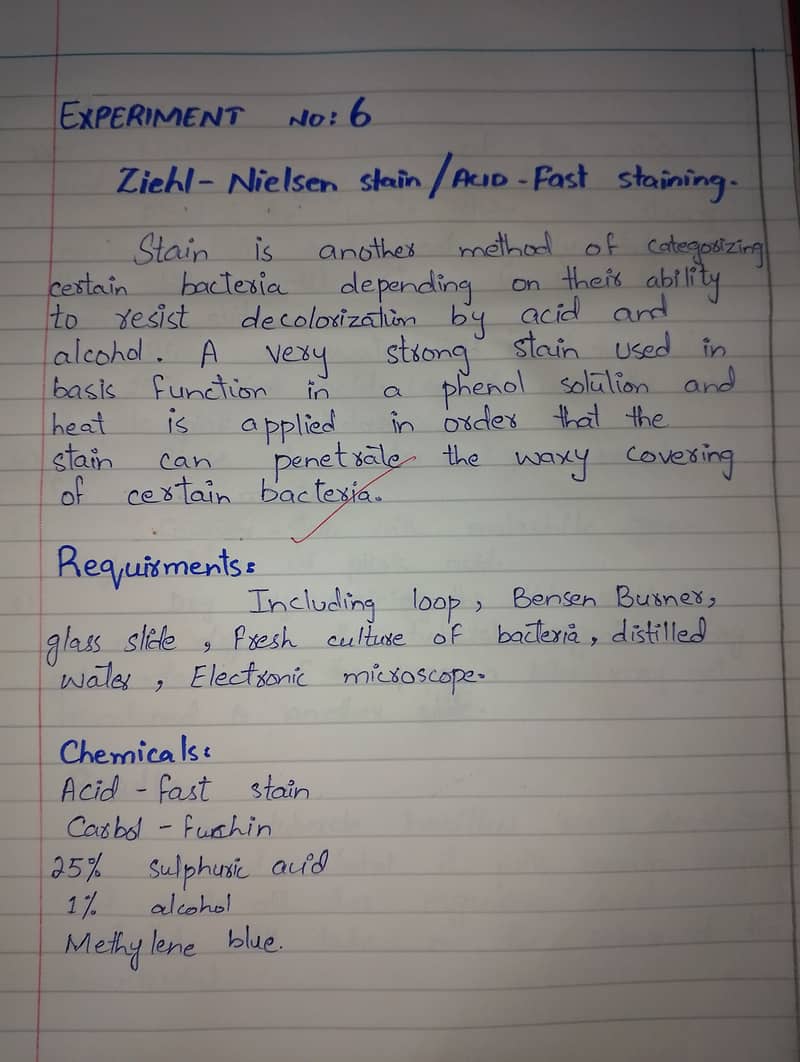 EXPERIMENT NO: 6
Ziehl-Nielsen stain/Acid-Fast staining.
Stain is another method of categorizing
certain bacteria depending on their ability
to resist decolorization by acid and
alcohol. A very strong stain used in
basis function in a phenol solution and
heat is applied in order that the
stain can penetrate the waxy covering
of certain bacteria.
Requirments:
Including loop, Bensen Burner,
glass slide, fresh culture of bacteria, distilled
water, Electronic microscope.
Chemicals:
Acid-fast stain
Carbol-fuchin
25% sulphuric acid
1% alcohol
Methylene blue.